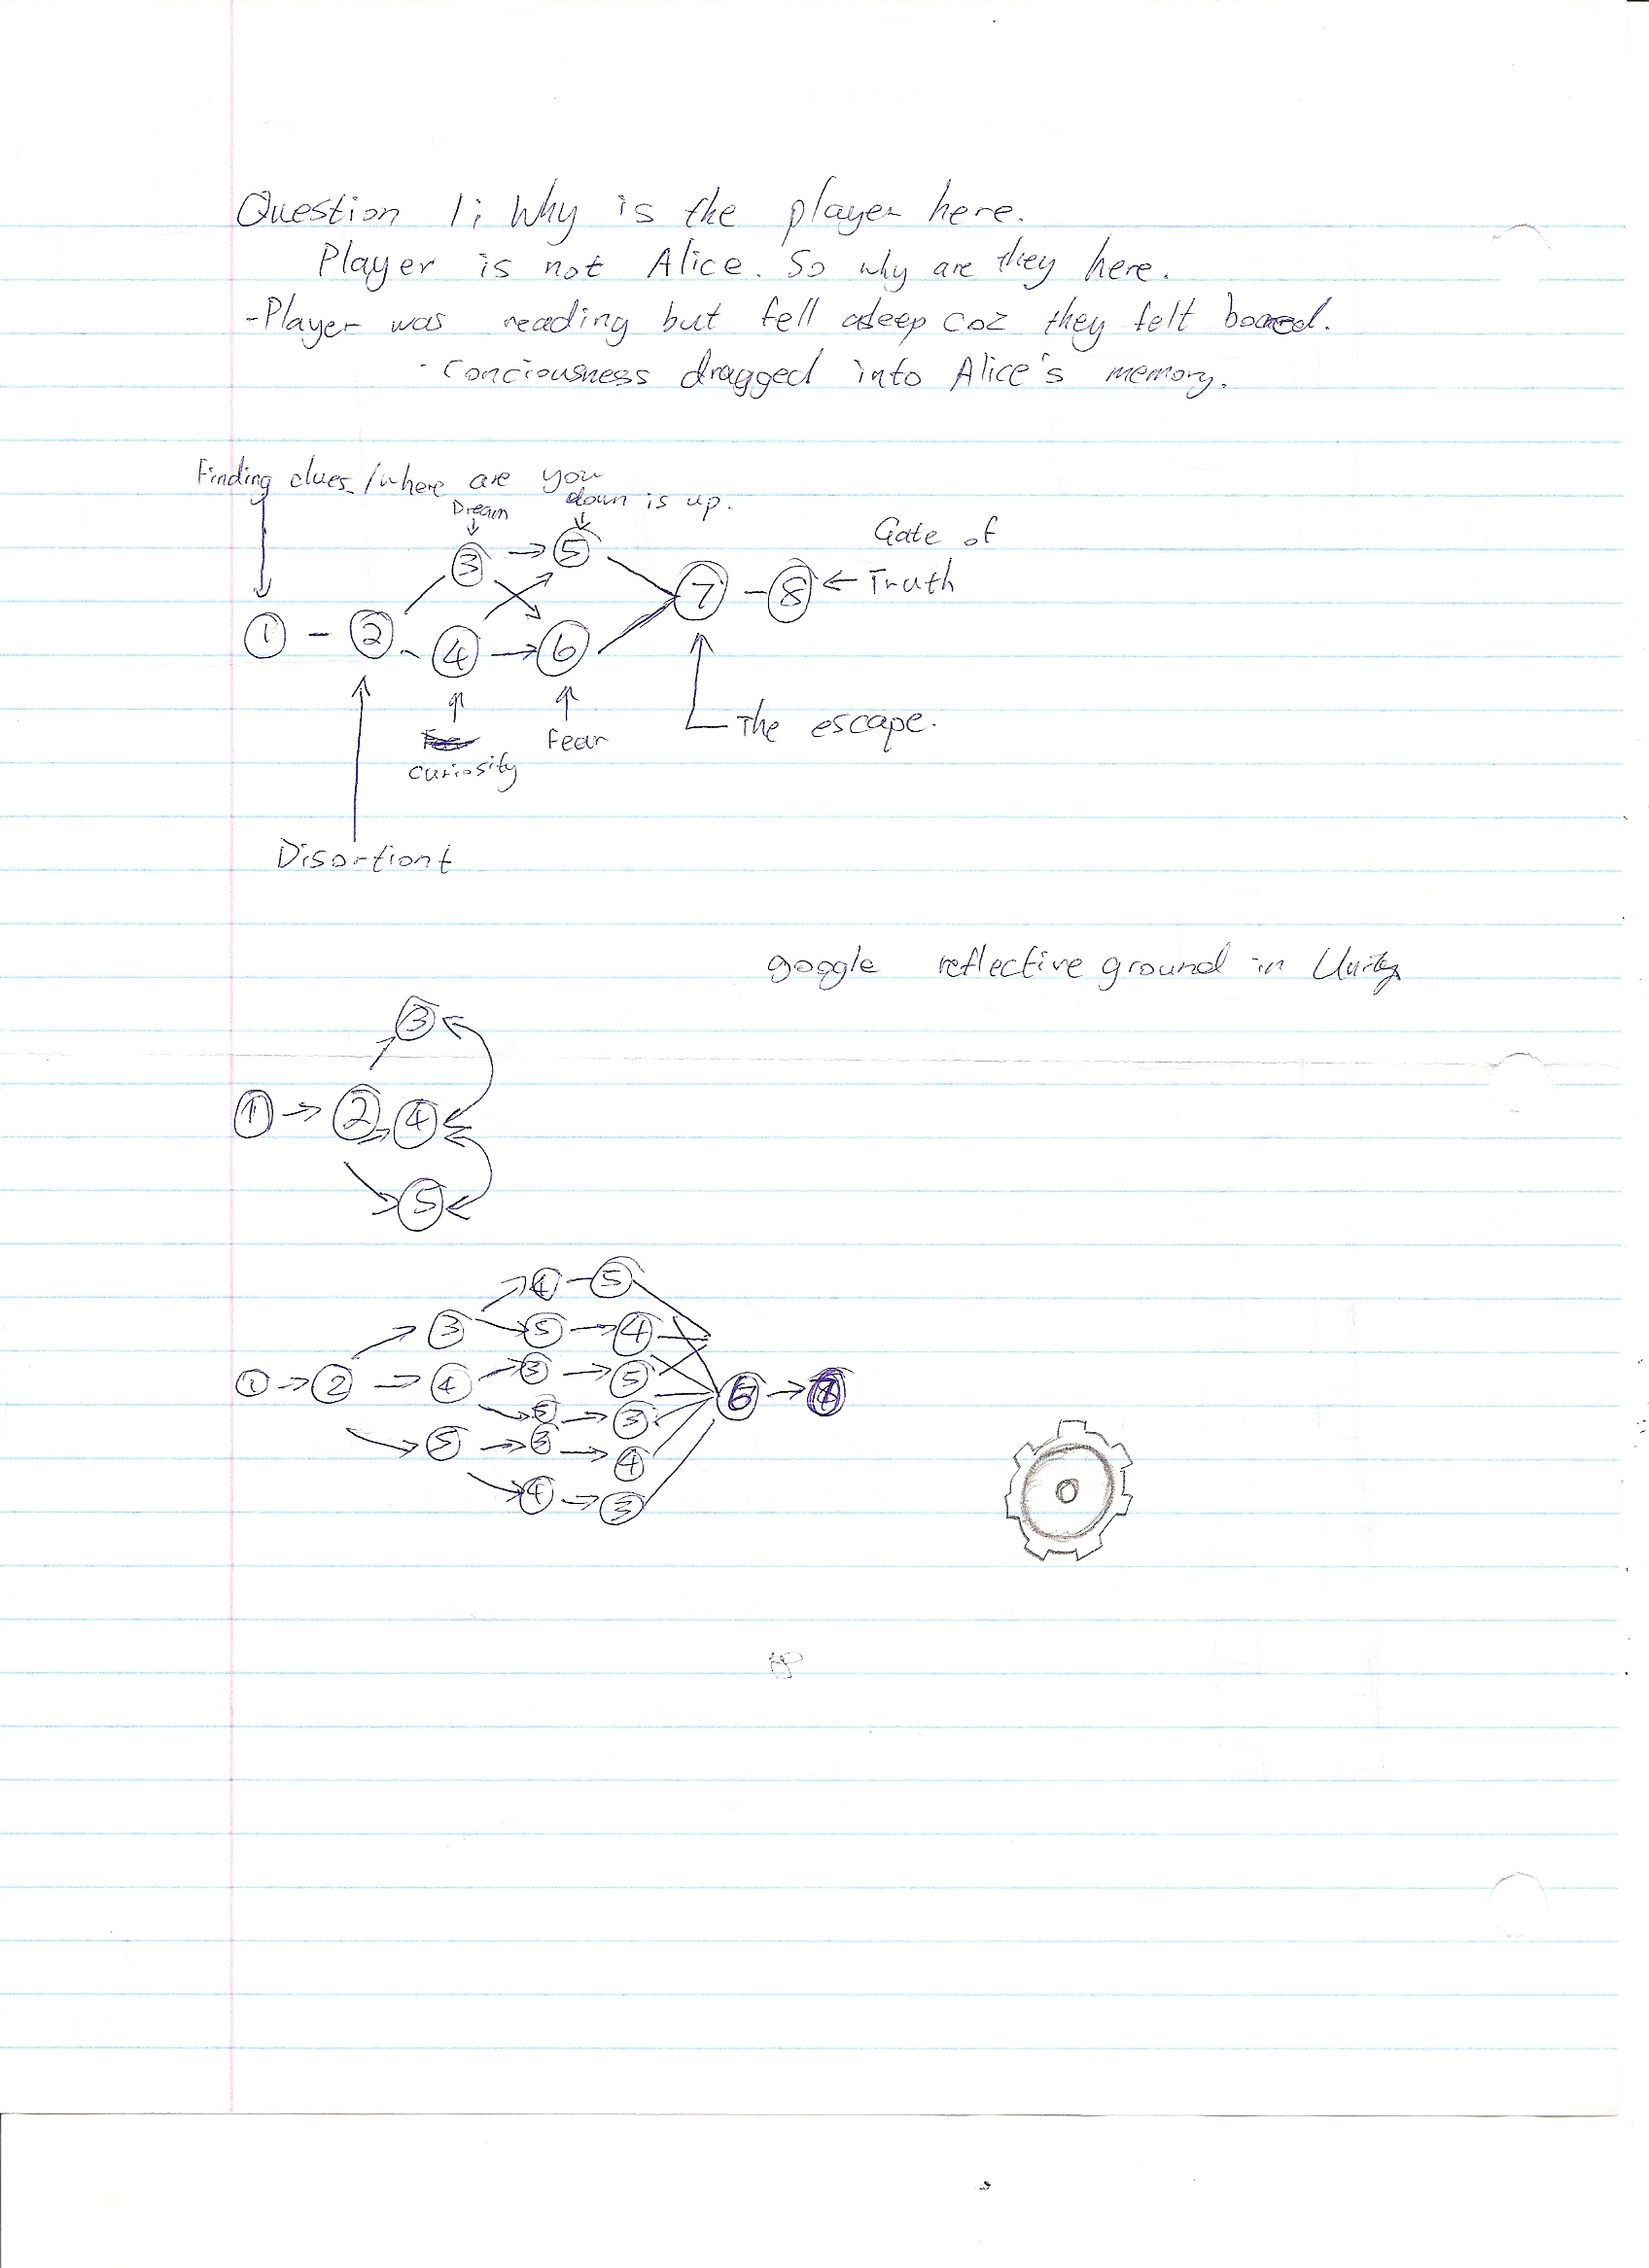 Question 1; Why is the player here.
Player is not Alice. So why are they here.
-Player was reading but fell asleep coz they felt bored.
- Conciousness dragged into Alice's memory.
Finding clues/where are you
Dream down is up.
Gate of
3 → 5
7 - 8 ← Truth
1 - 2 4 → 6
The escape.
Fear
Curiosity
Disortiont
google reflective ground in Unity
3
1 → 2 4
5
4 - 5
3 5 → 4
1 → 2 → 4 3 → 5 6 →
5 → 3
5 → 3 → 4
4 → 3